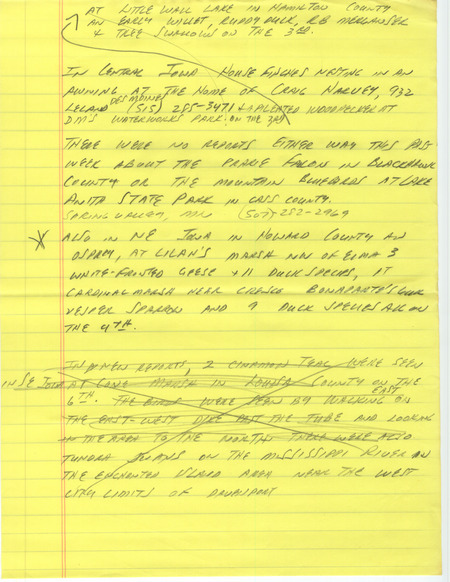 AT LITTLE WALL LAKE IN HAMILTON COUNTY
AN EARLY WILLET, RUDDY DUCK, RB MERGANSER
+ TREE SWALLOWS ON THE 3RD.
IN CENTRAL IOWA HOUSE FINCHES NESTING IN AN
AWNING AT THE HOME OF CRAIG HARVEY, 932
LELAND DES MOINES (515) 285-3471 + A PILEATED WOODPECKER AT
DM'S WATERWORKS PARK ON THE 3RD
THERE WERE NO REPORTS EITHER WAY THIS PAST
WEEK ABOUT THE PRARIE FALCON IN BLACKHAWK
COUNTY OR THE MOUNTAIN BLUEBIRDS AT LAKE
ANITA STATE PARK IN CASS COUNTY.
SPRING VALLEY, MN (507) 252-2969
ALSO IN NE IOWA IN HOWARD COUNTY AN
OSPREY, AT LILAN'S MARSH NW OF ELMA 3
WHITE-FRONTED GEESE + 11 DUCK SPECIES, AT
CARDINAL MARSH NEAR CRESCO BONAPARTE'S GULL
VESPER SPARROW AND 9 DUCK SPECIES ALL ON
THE 4TH.
IN OTHER REPORTS, 2 CINNAMON TEAL WERE SEEN
IN SE IOWA AT CONE MARSH IN LOUISA COUNTY ON THE
6TH. THE BIRDS WERE SEEN BY WALKING ON EAST
THE EAST-WEST DIKE PAST THE TUBE AND LOOKING
IN THE AREA TO THE NORTH. THERE WERE ALSO
TUNDRA SWANS ON THE MISSISSIPPI RIVER IN
THE ENCHANTED ISLAND AREA NEAR THE WEST
CITY LIMITS OF DAVENPORT